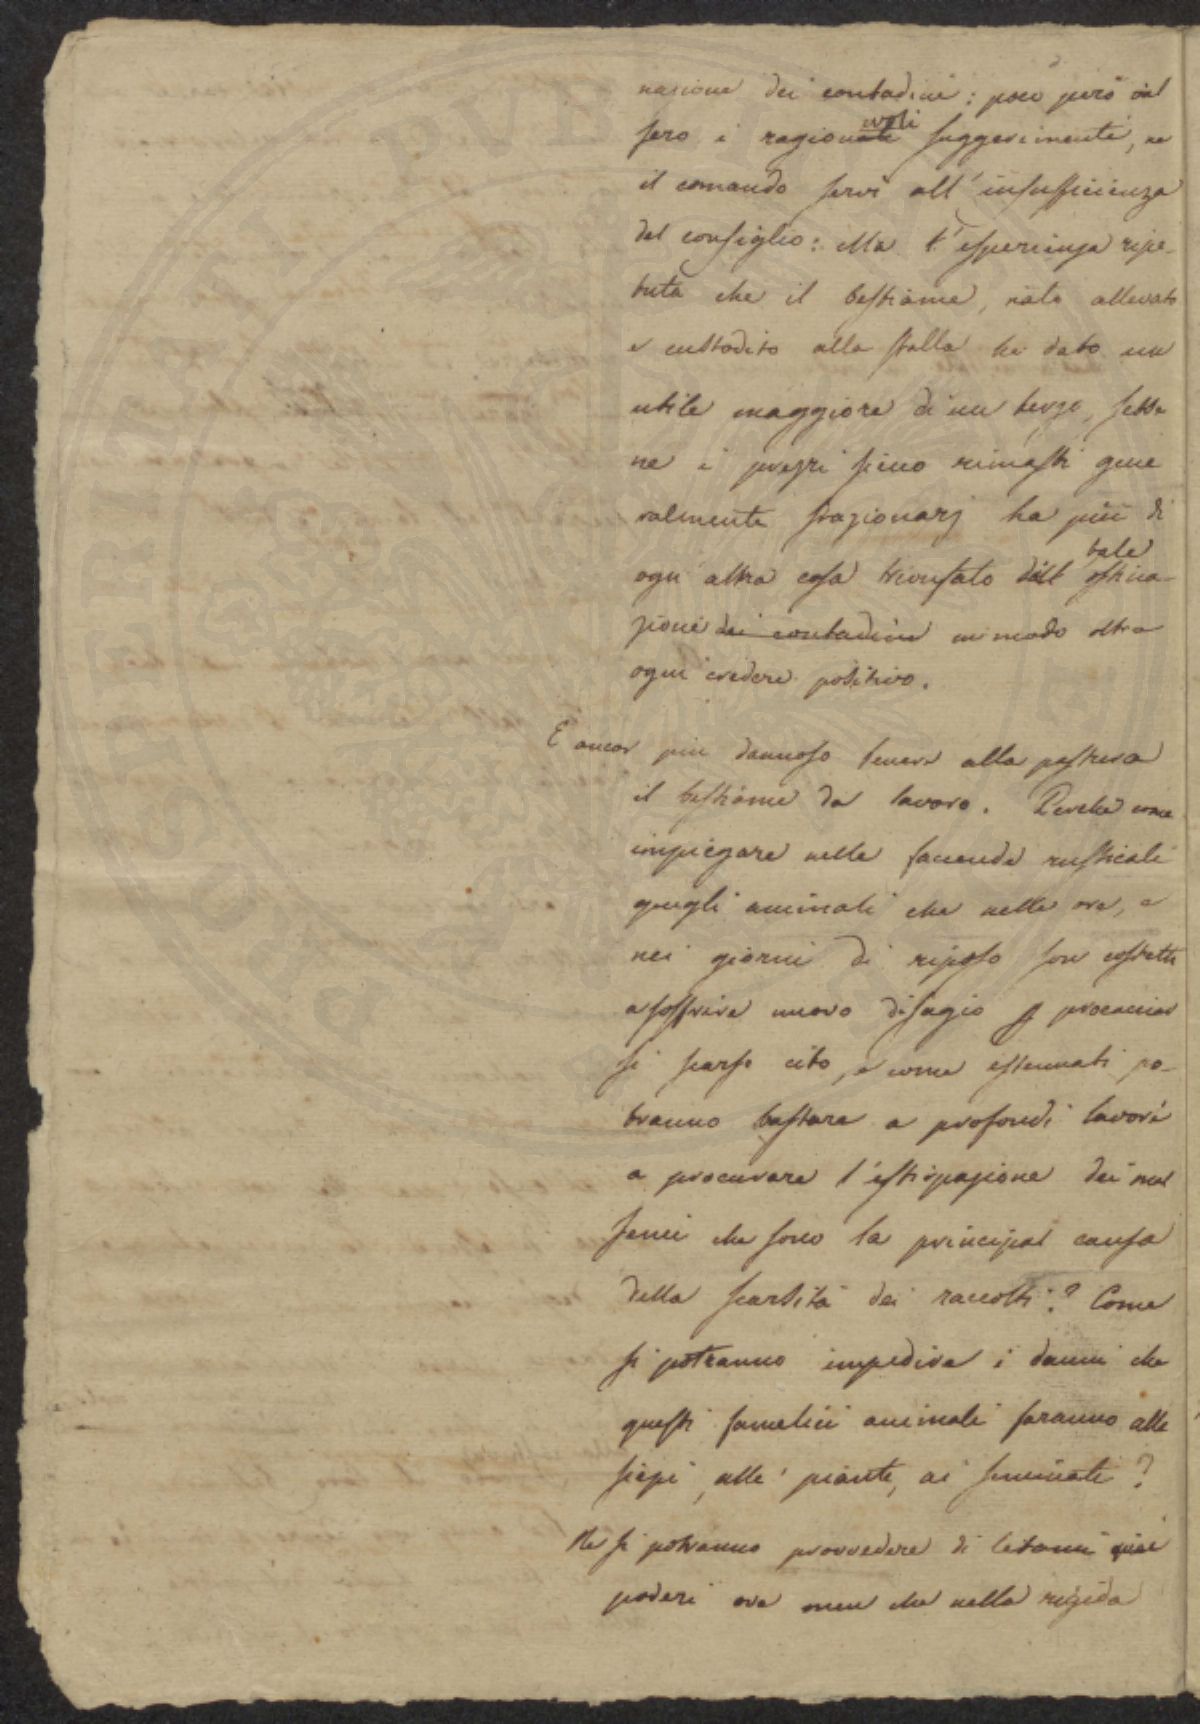 nazione dei contadini: poco però val
sero i ragionati evoli suggerimenti, ne
il comando servì all'insufficienza
del consiglio: Ma l'esperienza ripe-
tuta che il bestiame, nato allevato
e custodito alla stalla ha dato un
utile maggiore di un terzo, sebbe
ne i prezzi sieno rimasti gene
ralmente stazionarj ha più di
ogni altra cosa trionfato dell tale ostina-
zione dei contadini in modo oltre
ogni credere positivo.
E ancor più dannoso tenere alla pastura
il bestiame da lavoro. Perche come
impiegare nelle faccende rusticali
quegli animali che nelle ore, e
nei giorni di riposo son costretti
a soffrire nuovo disagio p procacciar
si scarso cibo, e come estenuati po-
tranno bastare a profondi lavori
a procurare l'estirpazione dei mal
semi che sono la principal causa
della scarsità dei raccolti? Come
si potranno impedire i danni che
questi famelici animali faranno alle
siepi, alle piante, ai seminati?
Ne si potranno provvedere di letami quei
poderi ove men che nella rigida